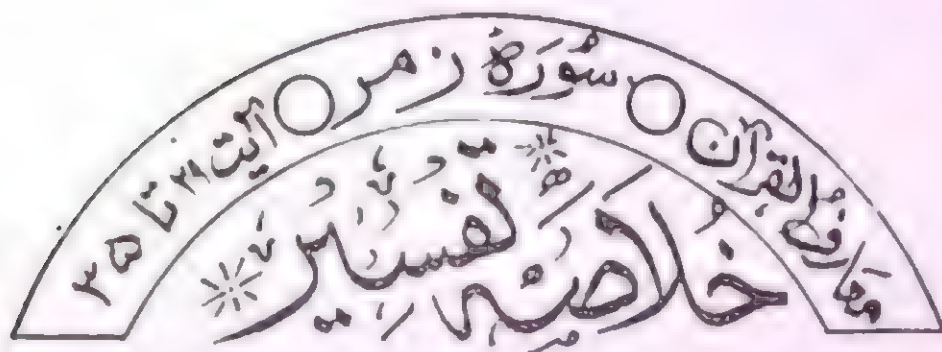 معارف القرآن ○ سُورَۃ زمر ○ آیت ۲۹ تا ۳۵
خلاصۂ تفسیر